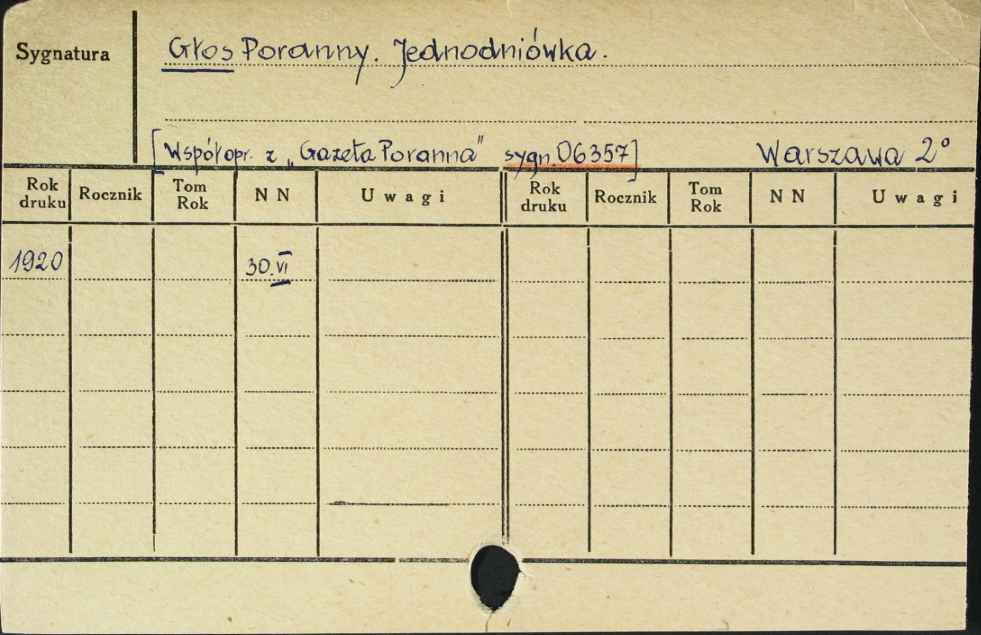 Sygnatura
Głos Poranny. Jednodniówka.
[Współopr. z „Gazeta Poranna" sygn. 06357] Warszawa 2°
Rok druku Rocznik Tom Rok N N Uwagi Rok druku Rocznik Tom Rok N N Uwagi
1920 30.VI